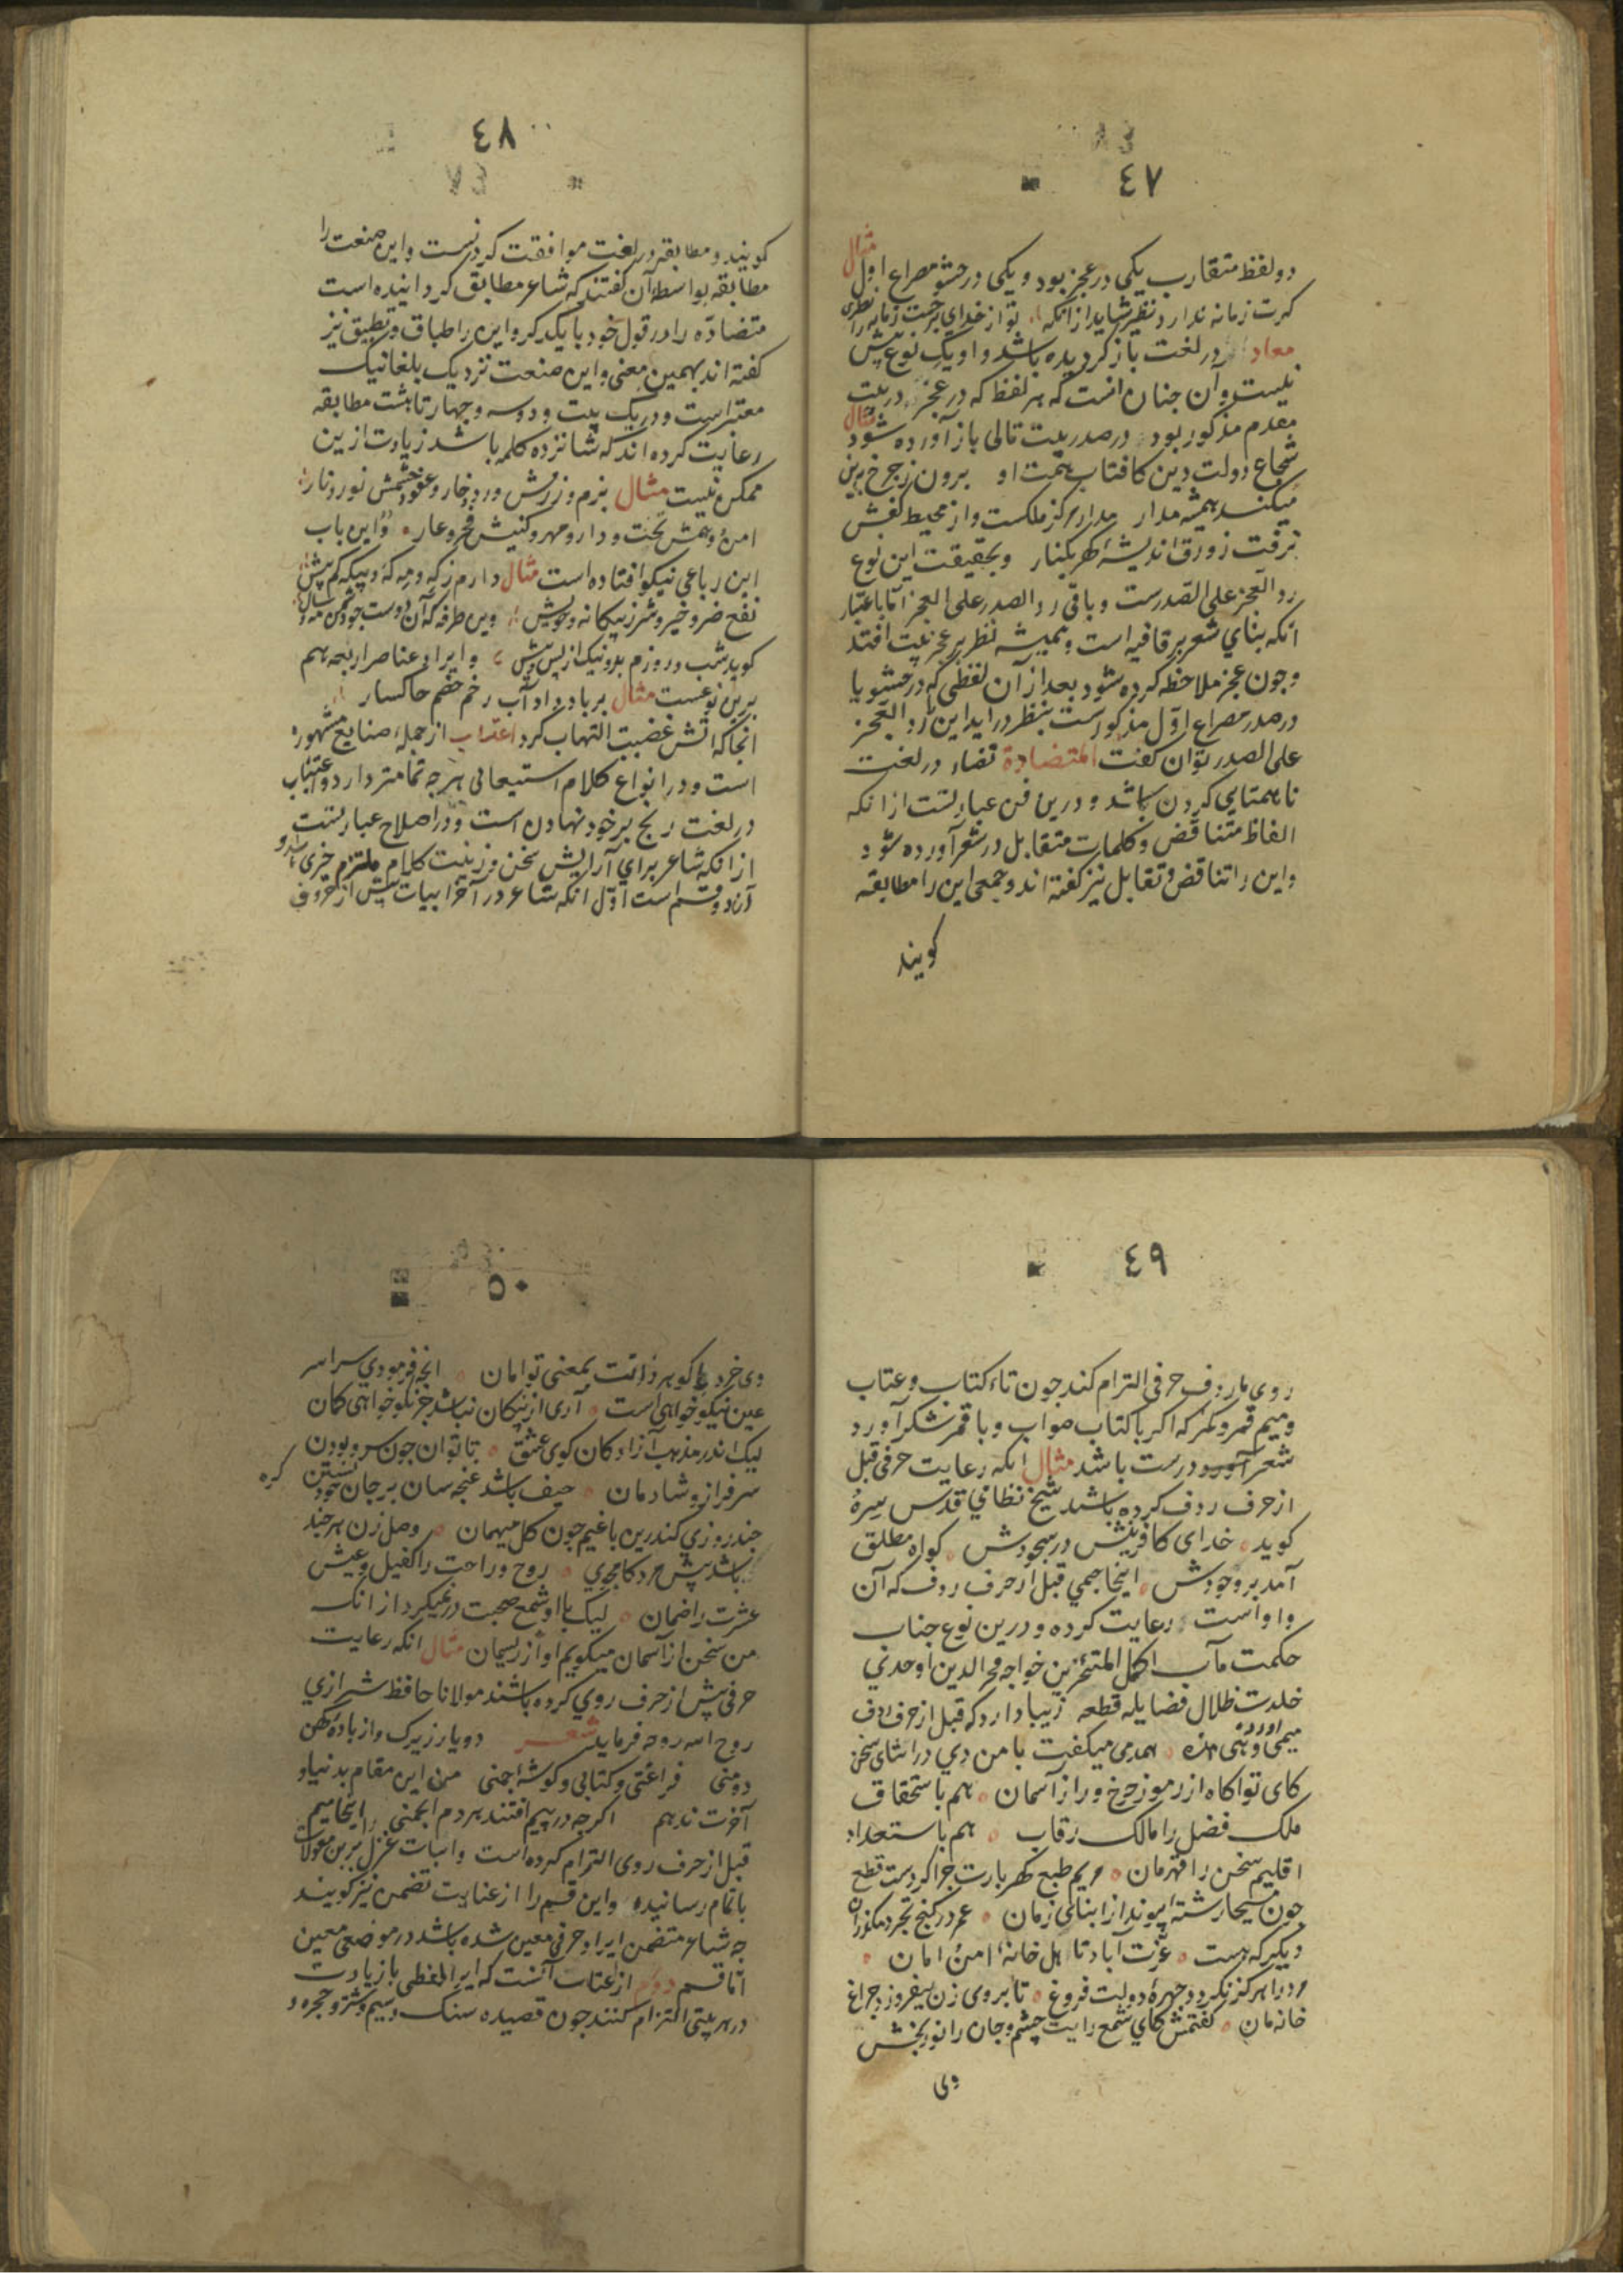 ٤٧
دو لفظ متقارب یکی در عجز بود و یکی در حشو مصراع اول مثال
کرت زمانه ندارد نظیر شاید از انکه تو از خدای برحمت زمانه را نظری
معاد در لغت باز کردیده باشد و او یک نوع بیش
نیست و آن جنان است که هر لفظ که در عجز در بیت
مقدم مذکور بود در صدر بیت تالی باز آورده شود مثال
شجاع دولت و دین کافتاب همت او برون ز جرخ برین
میکند همیشه مدار مدار مرکز ملکست و از محیط کفش
نرفت زورق اندیشهٔ کهر بکنار و بحقیقت این نوع
رد العجز علی الصدرست و باقی رد الصدر علی العجز اما باعتبار
انکه بنای شعر بر قافیه است و همیشه نظر بر عجز بیت افتد
و جون عجز ملاحظه کرده شود بعد از آن لفظی که در حشو یا
در صدر مصراع اول مذکور است بنظر در اید این را رد العجز
علی الصدر توان کفت المتضادة تضاد در لغت
ناهمتایی کردن باشد و درین فن عبارتست از انکه
الفاظ متناقض و کلمات متقابل در شعر آورده شود
و این را تناقض و تقابل نیز کفته اند و جمعی این را مطابقه
کویند
٤٨
کویند و مطابقه در لغت موافقت کردنست و این صنعت را
مطابقه بواسطه آن کفتند که شاعر مطابق کردانیده است
متضاده را در قول خود با یکدیکر و این را طباق و تطبیق نیز
کفته اند بهمین معنی و این صنعت نزدیک بلغا نیک
معتبر است و در یک بیت و دو سه و جهار تا هشت مطابقه
رعایت کرده اند که شانزده کلمه باشد زیادت ازین
ممکن نیست مثال بزم و رزمش ورد و خار و عفو و خشمش نور و نار
امن و بیمش تخت و دار و مهر و کینش فخر و عار و این باب
این رباعی نیکو افتاده است مثال دارم ز که و مه که و بیکه کم و بیش
نفع ضر و خیر و شر ز بیکانه و خویش وین طرفه که آن دوست جو دشمن مه و سال
کوید شب و روزم بد و نیک از پس و پیش و ایراد عناصر اربعه هم
برین نوعست مثال بر باد داد آب رخم خصم خاکسار
انجا که اتش غضبت التهاب کرد اعتاب از جمله صنایع مشهوره
است و در انواع کلام استیعابی هر جه تمامتر دارد و اعتاب
در لغت رنج بر خود نهادن است و در اصلاح عبارتست
از انکه شاعر برای آرایش سخن و زینت کلام ملتزم جیزی شود و
آن دو قسم است اول انکه شاعر در آخر ابیات پیش از حروف
٤٩
روی یا ردف حرفی التزام کند جون تاء کتاب و عتاب
و میم قمر و نمر که اکر با کتاب صواب و با قمر شکر آورد
شعر آورد درست باشد مثال انکه رعایت حرفی قبل
از حرف ردف کرده باشد شیخ نظامی قدس سره
کوید خدای کافرینش در سجودش کواه مطلق
آمد بر وجودش اینجا جیمی قبل از حرف ردف که آن
واو است رعایت کرده و درین نوع جناب
حکمت مآب اکمل المتاخرین خواجه فخر الدین اوحدی
خلدت ظلال فضایله قطعه زیبا دارد که قبل از حرف ردف
میمی آورده همدمی میکفت با من دی در اثنای سخن
کای تو آکاه از رموز جرخ و راز آسمان هم باستحقاق
ملک فضل را مالک رقاب هم باستعداد
اقلیم سخن را قهرمان مریم طبع کهربارت جرا کردست قطع
جون مسیحا رشتهٔ پیوند از ابنای زمان عمر در کنج تجرد مکذران
دیکر که هست عزت آباد تاهل خانهٔ امن و امان
مرد را هرکز نکردد جهرهٔ دولت فروغ تا بروی زن نیفروزد جراغ
خانه مان کفتمش کای شمع رایت چشم و جان را نور بخش
وی
٥٠
وی خرد با کوهر ذاتت بمعنی توامان انجه فرمودی سراسر
عین نیکو خواهی است آری از نیکان نباشد جز نکو خواهی کمان
لیک اندر مذهب آزادکان کوی عشق تا توان جون سرو بودن
سرفراز و شادمان حیف باشد غنجه سان بر جان خود بستن کره
جند روزی کندرین باغیم جون کل میهمان وصل زن هر جند
باشد پیش مرد کامجوی روح و راحت را کفیل و عیش
عشرت را ضمان لیک با او شمع صحبت در نمیکرد از انک
من سخن از آسمان میکویم او از ریسمان مثال انکه رعایت
حرفی پیش از حرف روی کرده باشند مولانا حافظ شیرازی
روح الله روحه فرماید شعر دو یار زیرک و از بادهٔ کهن
دو منی فراغتی و کتابی و کوشهٔ جمنی من این مقام بدنیا و
آخرت ندهم اکرجه در پیم افتند هر دم انجمنی اینجا میم
قبل از حرف روی التزام کرده است و ابیات غزل برین موالات
باتمام رسانیده و این قسم را از عنایت تضمن نیز کویند
جه شاعر متضمن ایراد حرفی معین شده باشد در موضعی معین
اما قسم دوم از عتاب آنست که ایراد لفظی با زیادت
در هر بیتی التزام کنند جون قصیده سنک و سیم و شتر و حجره و